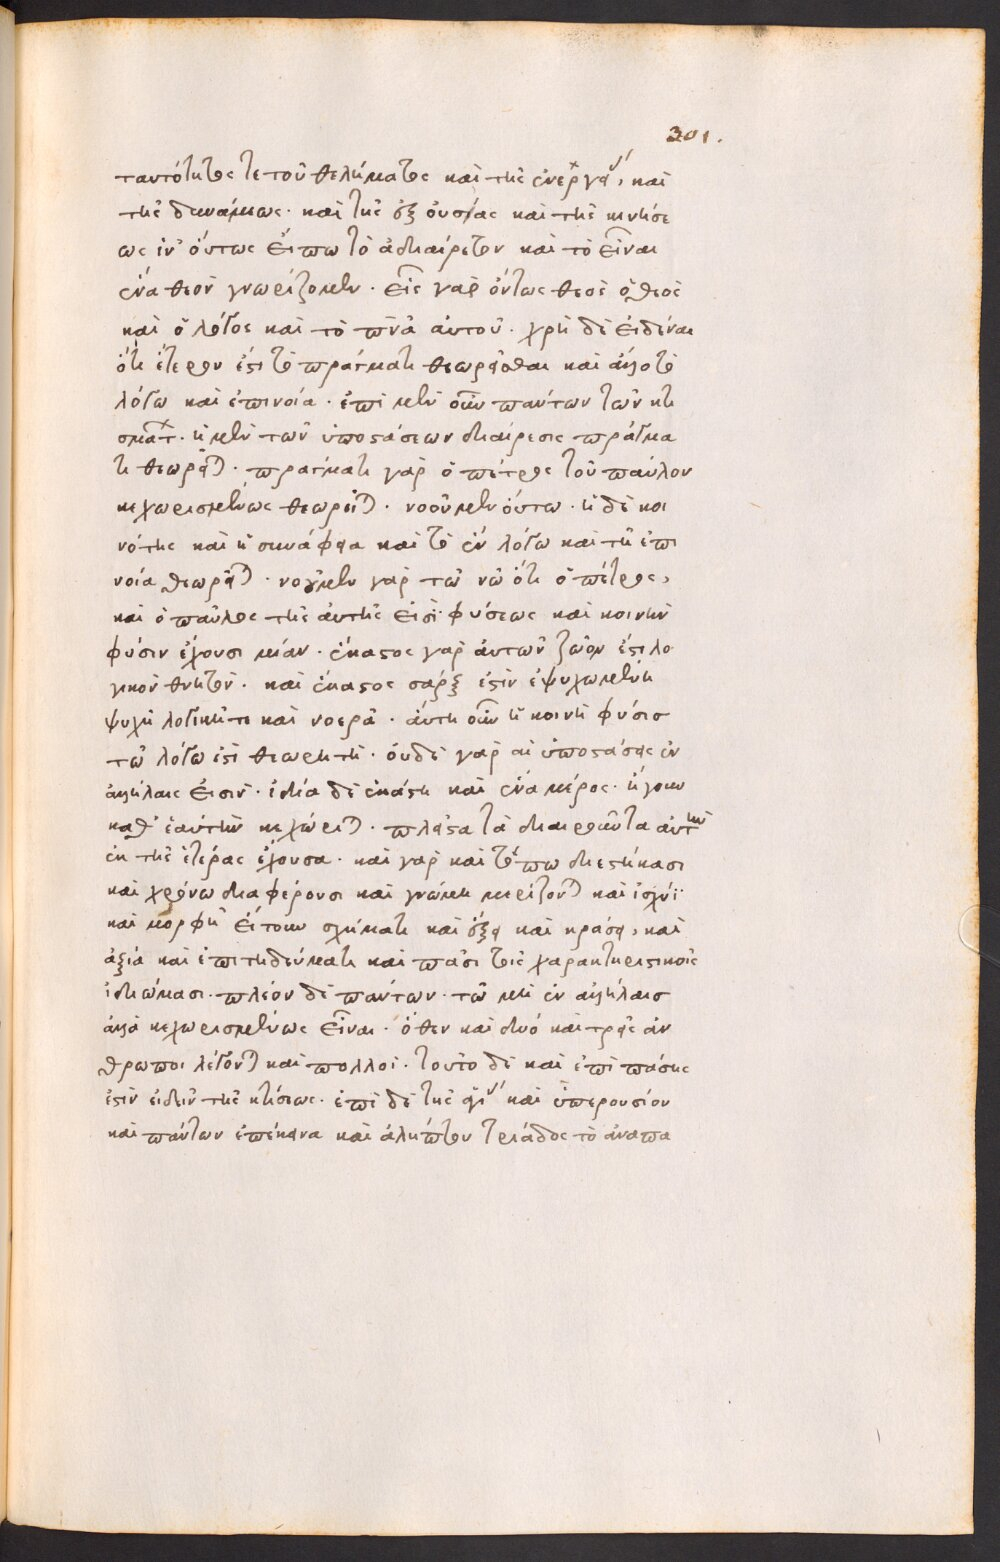 301.
ταυτότητος τε τοῦ θελήματος καὶ τῆς ἐνεργείας, καὶ
τῆς δυνάμεως· καὶ τῆς ἐξουσίας καὶ τῆς κινήσε
ως ἵν' ὅυτως ἔιπω τὸ ἀδιαίρετον καὶ τὸ εἶναι
ἕνα θεὸν γνωρίζομεν. εἷς γὰρ ὄντως θεὸς ὁ θεὸς
καὶ ὁ λόγος καὶ τὸ πνᾶ ἀυτοῦ. χρὴ δὲ ἐιδέναι
ὅτι ἕτερον ἐστὶ τὸ πράγματι θεωρεῖσθαι καὶ ἄλλο τὸ
λόγω καὶ ἐπινοία. ἐπὶ μὲν οὖν πάντων τῶν κτι
σμάτ. ἡ μὲν τῶν ὑποστάσεων διαίρεσις πράγμα
τι θεωρεῖται. πράγματι γὰρ ὁ πέτρος τοῦ παύλου
κεχωρισμένως θεωρεῖται. νοοῦμεν ὅυτω. ἡ δὲ κοι
νότης καὶ ἡ συνάφεια καὶ τὸ ἓν λόγω καὶ τῆ ἐπι
νοία θεωρεῖται. νοοῦμεν γὰρ τῶ νῶ ὅτι ὁ πέτρος,
καὶ ὁ παῦλος τῆς ἀυτῆς εἰσὶ φύσεως καὶ κοινὴν
φύσιν ἔχουσι μίαν. ἕκαστος γὰρ ἀυτῶν ζῶον ἐστι λο
γικὸν θνητὸν. καὶ ἕκαστος σάρξ ἐστὶν ἐψυχωμένη
ψυχῆ λογικῆ τε καὶ νοερᾶ. ἅυτη οὖν ἡ κοινὴ φύσις
τῶ λόγω ἐστὶ θεωρητὴ. ὀυδὲ γὰρ αἱ ὑποστάσεις ἐν
ἀλλήλαις ἔισιν. ἰδία δὲ ἑκάστη καὶ ἀνὰ μέρος. ἤγουν
καθ' ἑαυτὴν κεχώρισται. πλεῖστα τὰ διαιροῦντα ἀυτὴν
ἐκ τῆς ἑτέρας ἔχουσα. καὶ γὰρ καὶ τόπω διεστήκασι
καὶ χρόνω διαφέρουσι καὶ γνώμη μερίζονται καὶ ἰσχύϊ
καὶ μορφῆ ἔιτουν σχήματι καὶ ἕξει καὶ κράσει, καὶ
ἀξία καὶ ἐπιτηδεύματι καὶ πᾶσι τοῖς χαρακτηριστικοῖς
ἰδιώμασι. πλέον δὲ πάντων. τῶ μὴ ἐν ἀλλήλαις
ἀλλὰ κεχωρισμένως εἶναι. ὅθεν καὶ δυό καὶ τρεῖς ἄν
θρωποι λέγονται καὶ πολλοὶ. τοῦτο δὲ καὶ ἐπὶ πάσης
ἐστὶν ἰδεῖν τῆς κτίσεως. ἐπὶ δὲ τῆς ἁγίας καὶ ὑπερουσίου
καὶ πάντων ἐπέκεινα καὶ ἀλήπτου τριάδος τὸ ἀνάπα